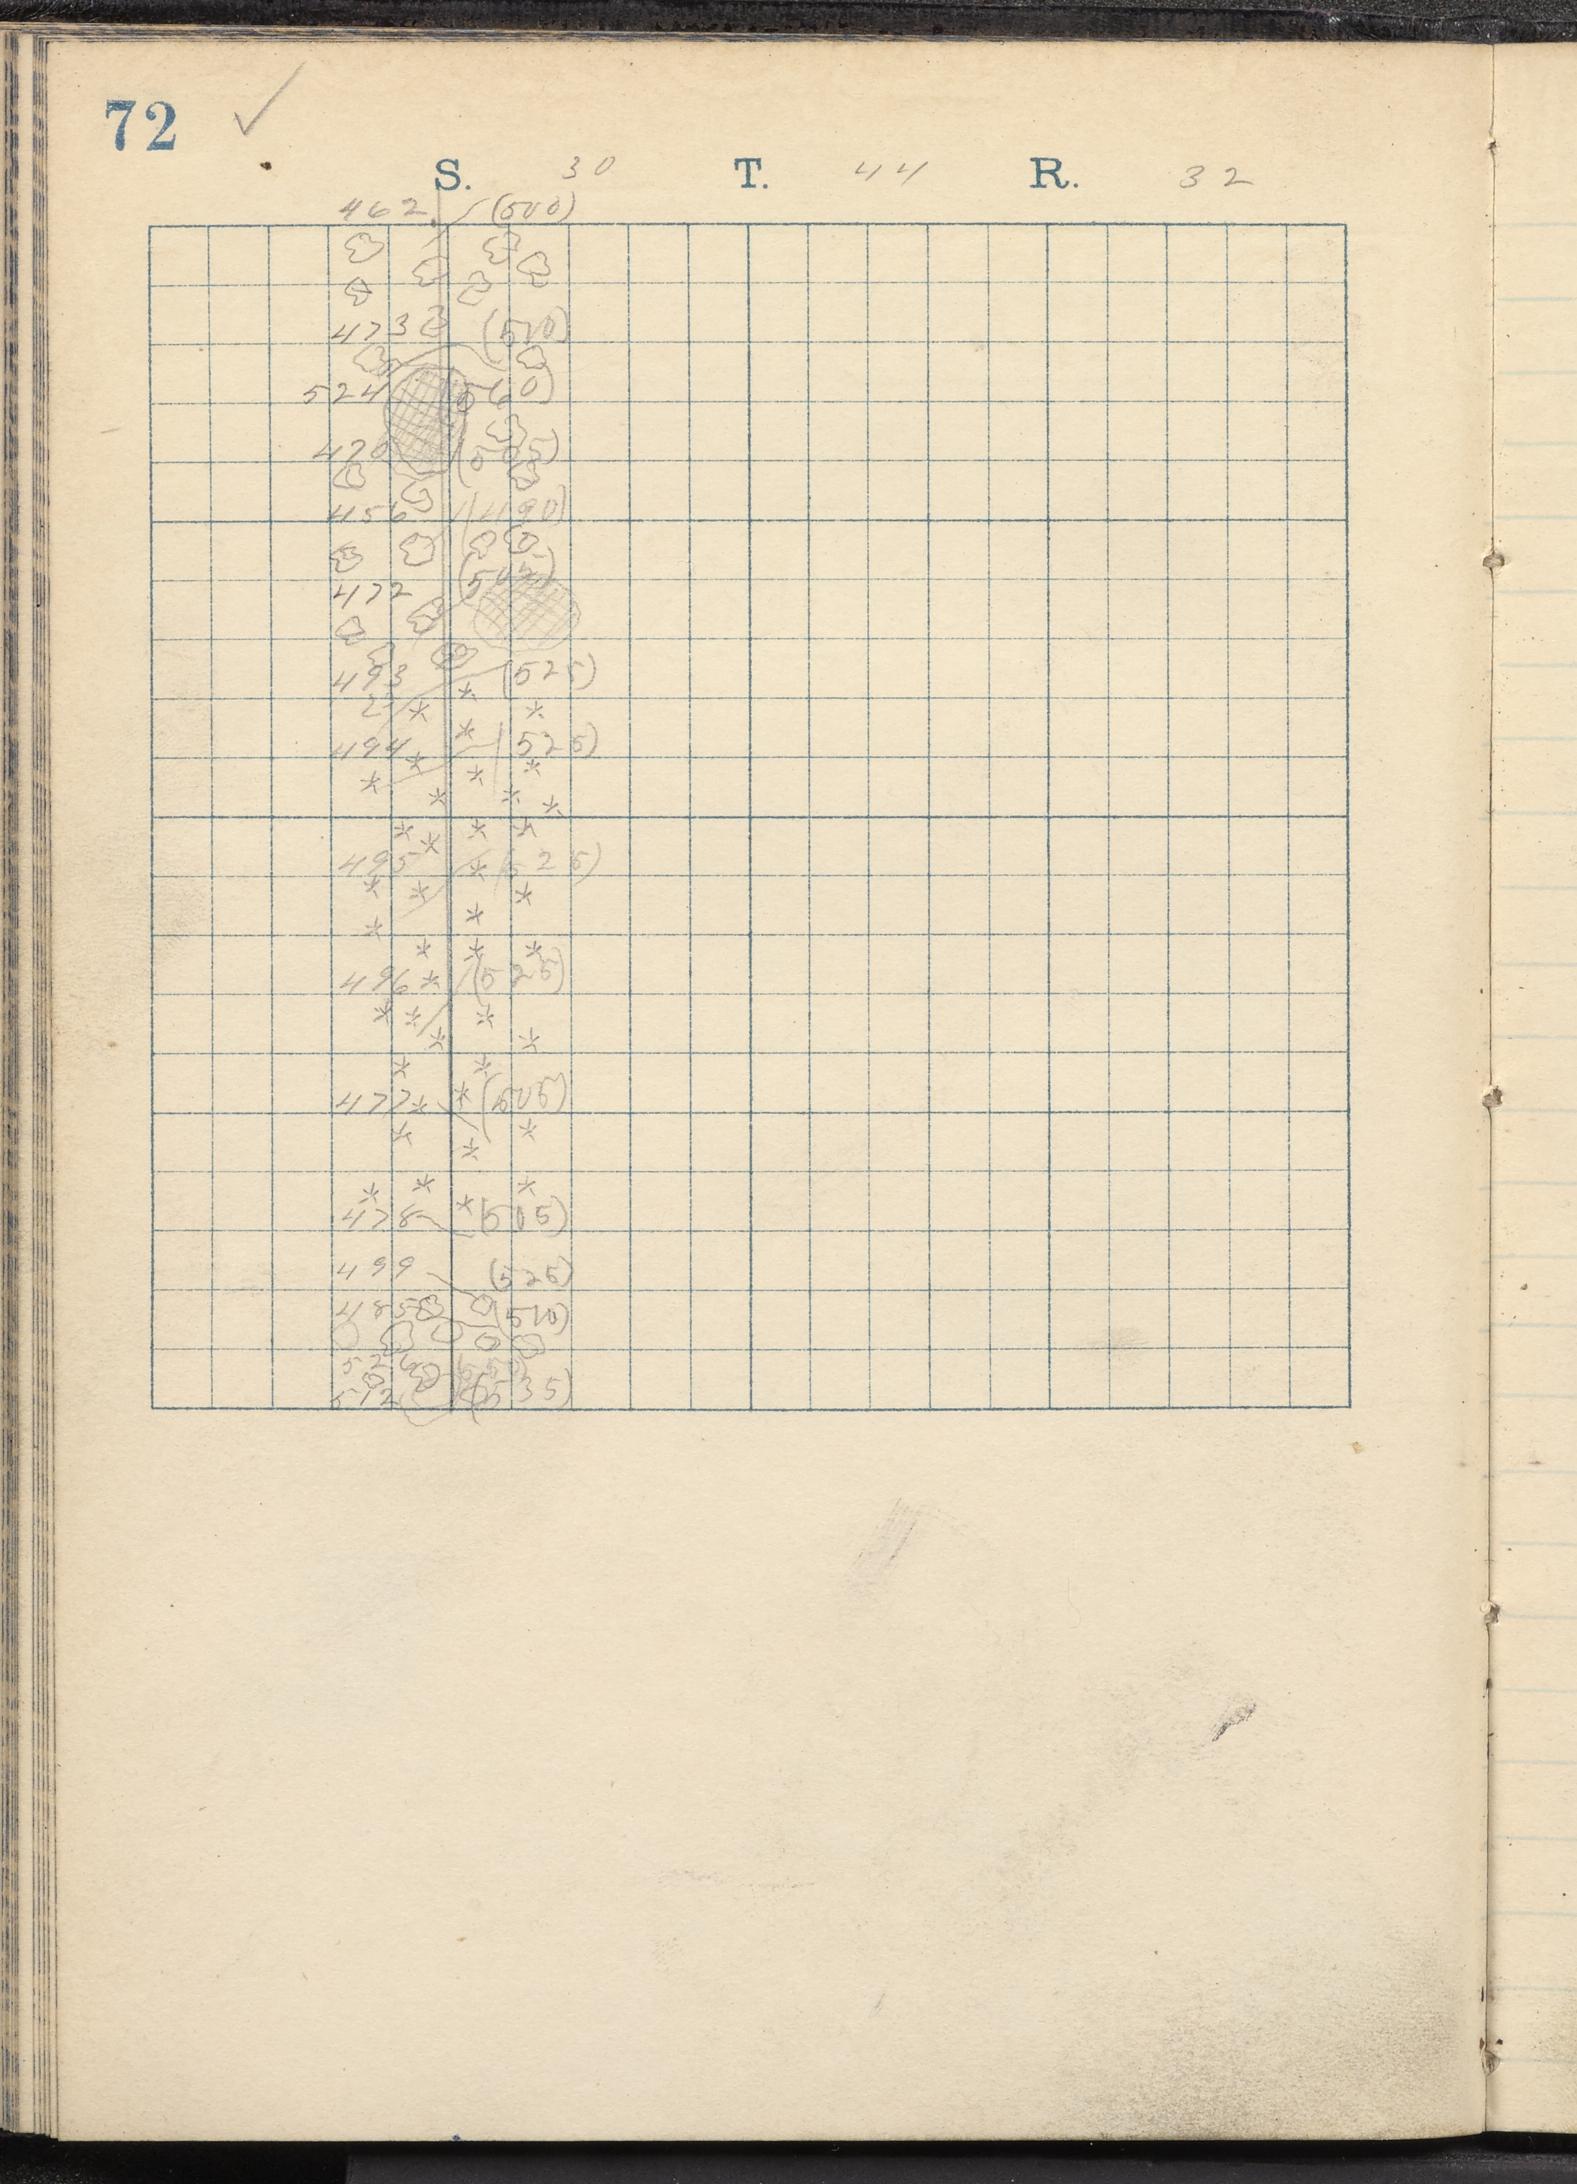 72
S. 30 T. 44 R. 32
462 (500)
473 (510)
524 (560)
470 (505)
456 (490)
472 (505)
493 (525)
2
494 (525)
495 (525)
496 (525)
477 (505)
478 (505)
499 (525)
485 (510)
526
512 (535)